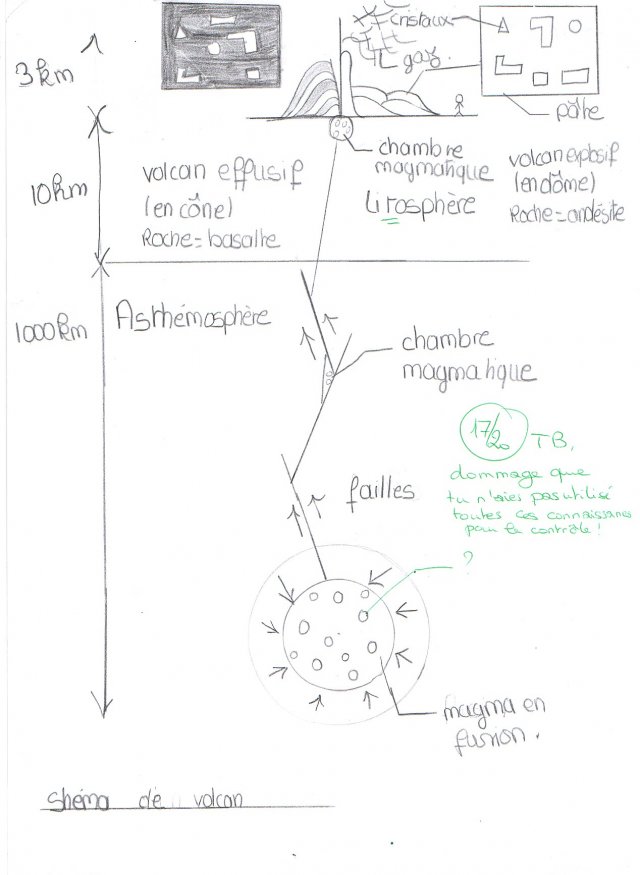 cristaux
gaz.
3km
pâte
10km
volcan effusif
(en cône)
Roche = basalte
chambre
magmatique
Litosphère
volcan explosif
(en dôme)
Roche = andésite
1000km
Asthémosphère
chambre
magmatique
17/20 TB,
dommage que
tu n'aies pas utilisé
toutes ces connaissances
pour le contrôle!
failles
?
magma en
fusion.
shéma de volcan